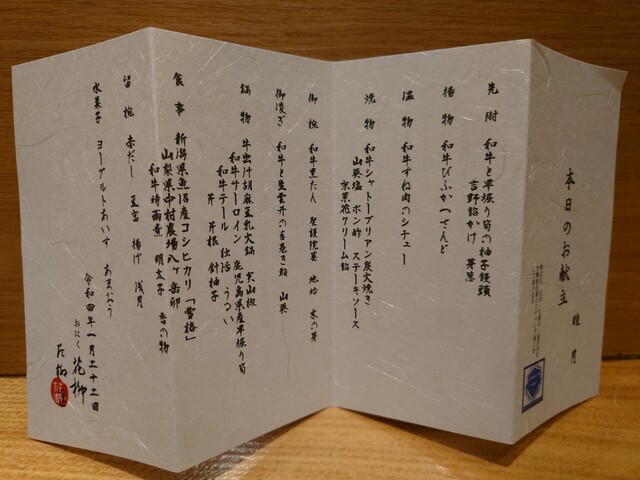 本日のお献立 睦月
先附 和牛と早堀り筍の柚子饅頭
吉野餡かけ 芽葱
揚物 和牛びふかつさんど
温物 和牛すね肉のシチュー
焼物 和牛シャトーブリアン炭火焼き
山葵塩 ポン酢 ステーキソース
京菜花クリーム餡
御椀 和牛黒たん 聖護院蕪 地蛤 木の芽
御凌ぎ 和牛と生雲丹の手巻き鮨 山葵
鍋物 牛出汁胡麻豆乳火鍋 実山椒
和牛サーロイン 鹿児島県産早堀り筍
和牛テール 独活 うるい
芹 芹根 針柚子
食事 新潟県魚沼産コシヒカリ「雪椿」
山梨県中村農場八ヶ岳卵
和牛時雨煮 明太子 香の物
留椀 赤だし 豆富 揚げ 浅月
水菓子 ヨーグルトあいす あまおう
令和四年一月二十二日
おにく 花柳
片柳